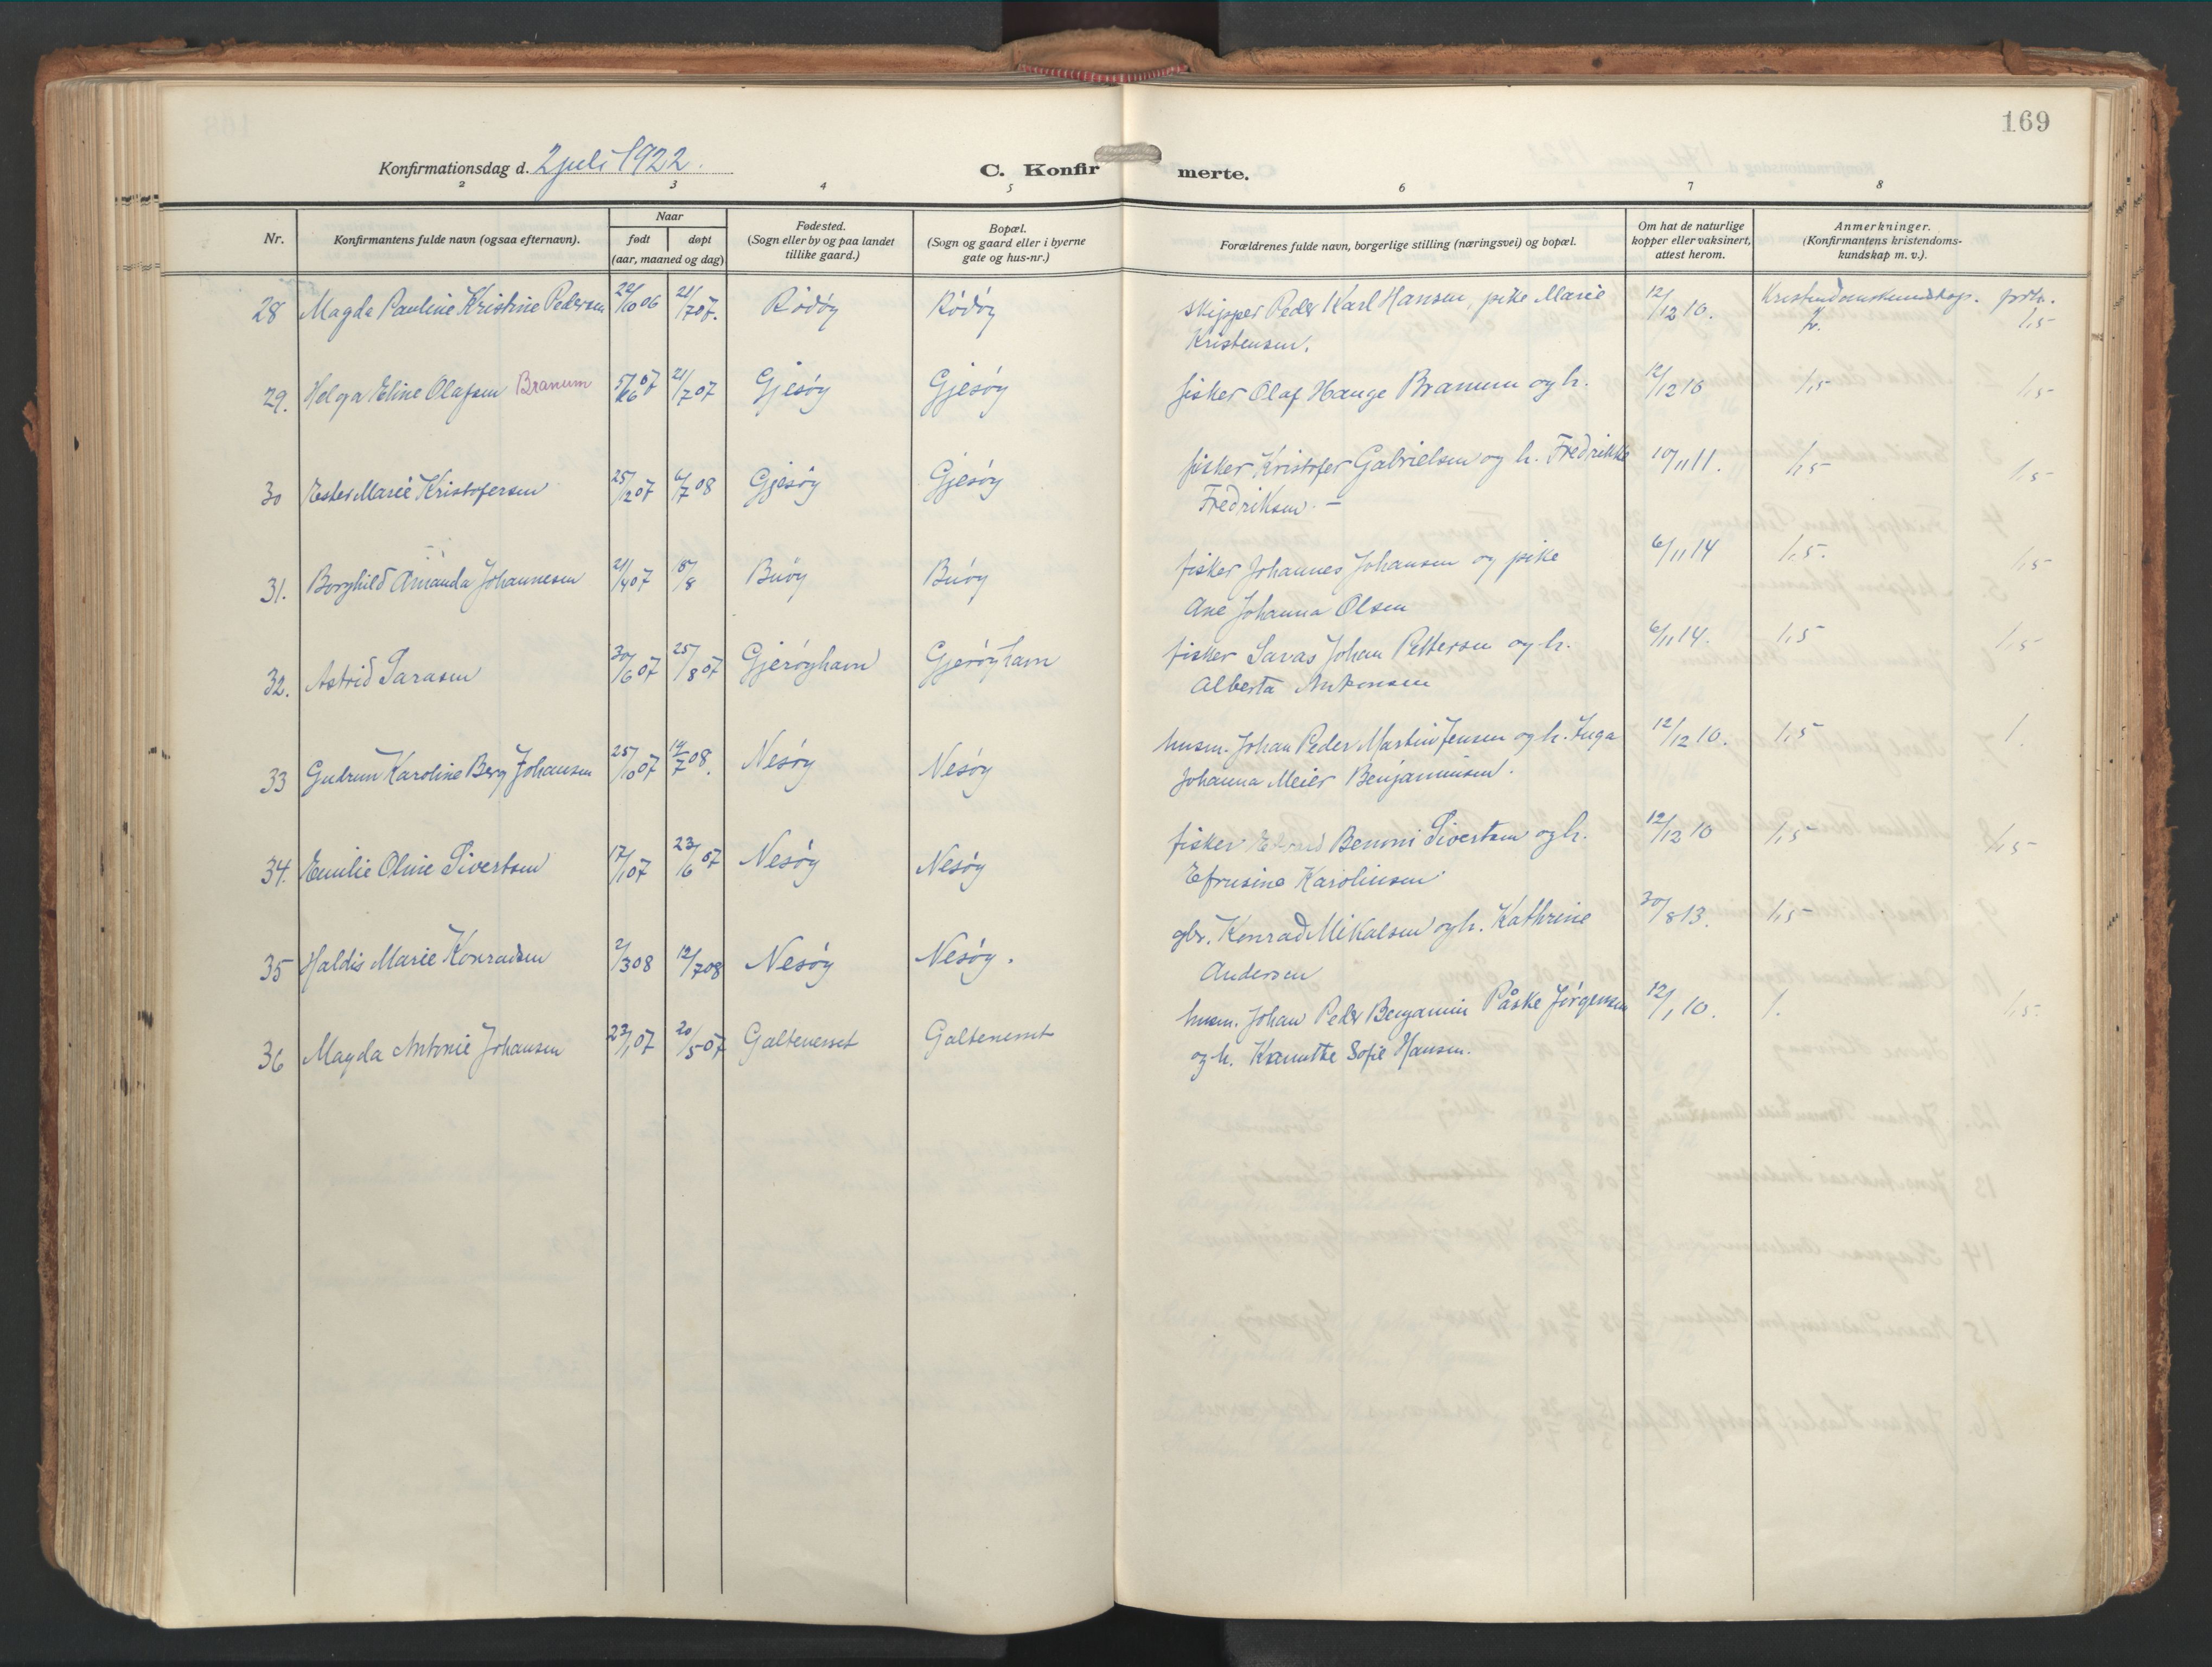 169
Konfirmationsdag d. 2 juli 1922.
C. Konfirmerte.
2 3 4 5 6 7 8
Nr.
Konfirmantens fulde navn (ogsaa efternavn).
Naar
født døpt
(aar, maaned og dag)
Fødested.
(Sogn eller by og paa landet
tillike gaard.)
Bopæl.
(Sogn og gaard eller i byerne
gate og hus-nr.)
Forældrenes fulde navn, borgerlige stilling (næringsvei) og bopæl.
Om hat de naturlige
kopper eller vaksinert,
attest herom.
Anmerkninger.
(Konfirmantens kristendoms-
kundskap m. v.).
28 Magda Pauline Kristine Pedersen 22/10 06 21/7 07. Rödöy Rödöy skipper Peder Karl Hansen, pike Marie 12/12 10. Kristendomskundskap.
Kristensen. 2. 1,5
29. Helga Eline Olafsen Branum 21/7 07 Gjesöy Gjesöy fisker Olaf Hauge Branum og h. 12/12 10 1,5 1,5
30 Ester Marie Kristofersen 25/12 07 6/7 08 Gjesöy Gjesöy fisker Kristofer Gabrielsen og h. Fredrikke 10/11 11. 1,5 1,5
Fredriksen. —
31. Borghild Amanda Johannesen 21/4 07 18/8 Buöy Buöy fisker Johannes Johansen og pike 6/11 14 1,5. 1,5
Ane Johanna Olsen
32. Astrid Sarasen 30/6 07 25/8 07 Gjeröyhavn Gjeröyhavn fisker Saras Johan Pettersen og h. 6/11 14. 1,5 1,5
Alberta
33 Gudrun Karoline Berg Johansen 25/10 07 19/7 08. Nesöy Nesöy husm. Johan Peder Martin Jensen og h. Inga 12/12 10. 1,5 1.
Johanna Meier Benjaminsen.
34. Emilie Oline Sivertsen 17/1 07 23/6 07 Nesöy Nesöy fisker Edvard Benoni Sivertsen og h. 12/12 10 1,5 1,5
Efrusine Karolinsen
35 Haldis Marie Konradsen 2/3 08 12/7 08 Nesöy Nesöy. gbr. Konrad Mikalsen og h. Kathrine 30/8 13. 1,5
Andersen
36 Magda Antonie Johansen 23/1 07 20/5 07 Galtenesset Galtenesset husm. Johan Peder Benjamin Påske Jörgensen 12/1 10. 1. 1,5
og h. Kanutte Sofie Hansen.